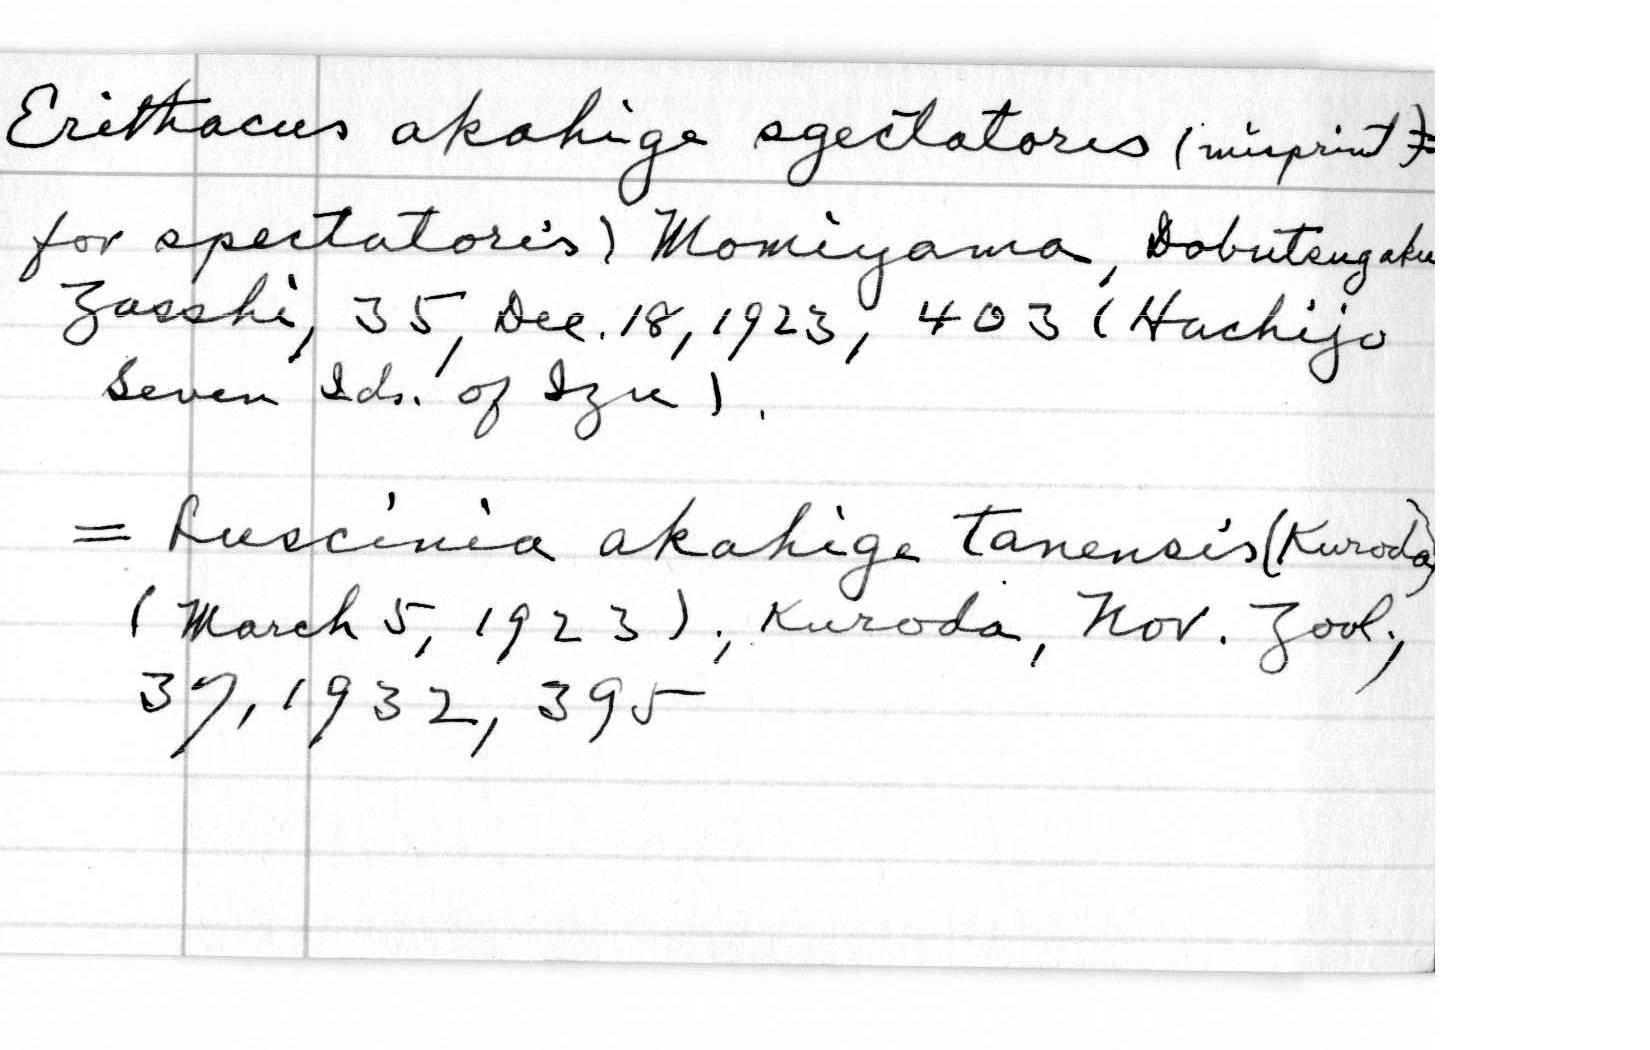 Erithacus akahige sgectatoris (misprint?=
for spectatoris) Momiyama, Dobutsugaku
Zasshi, 35, Dec. 18, 1923, 403 (Hachijo
Seven Ids. of Izu).
= Luscinia akahige tanensis (Kuroda)
(March 5, 1923); Kuroda, Nov. Zool.,
37, 1932, 395